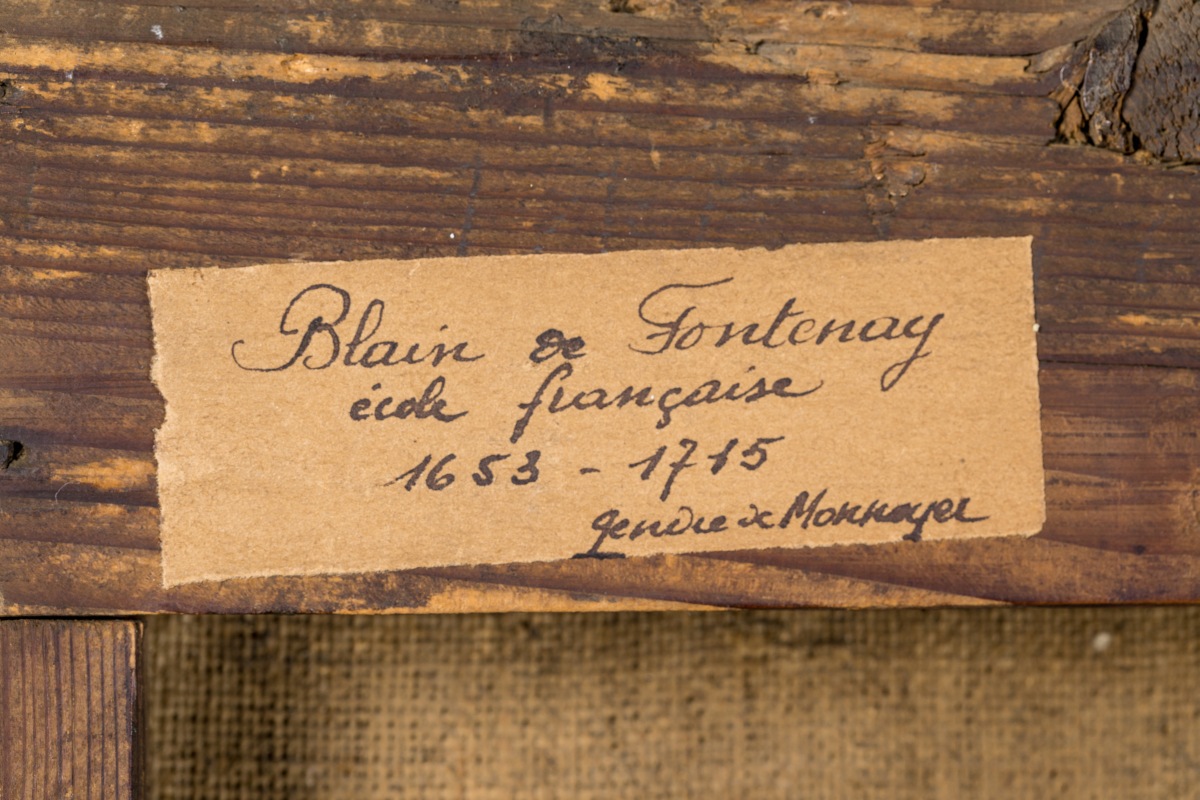 Blain de Fontenay
école française
1653 - 1715
gendre de Monnoyer